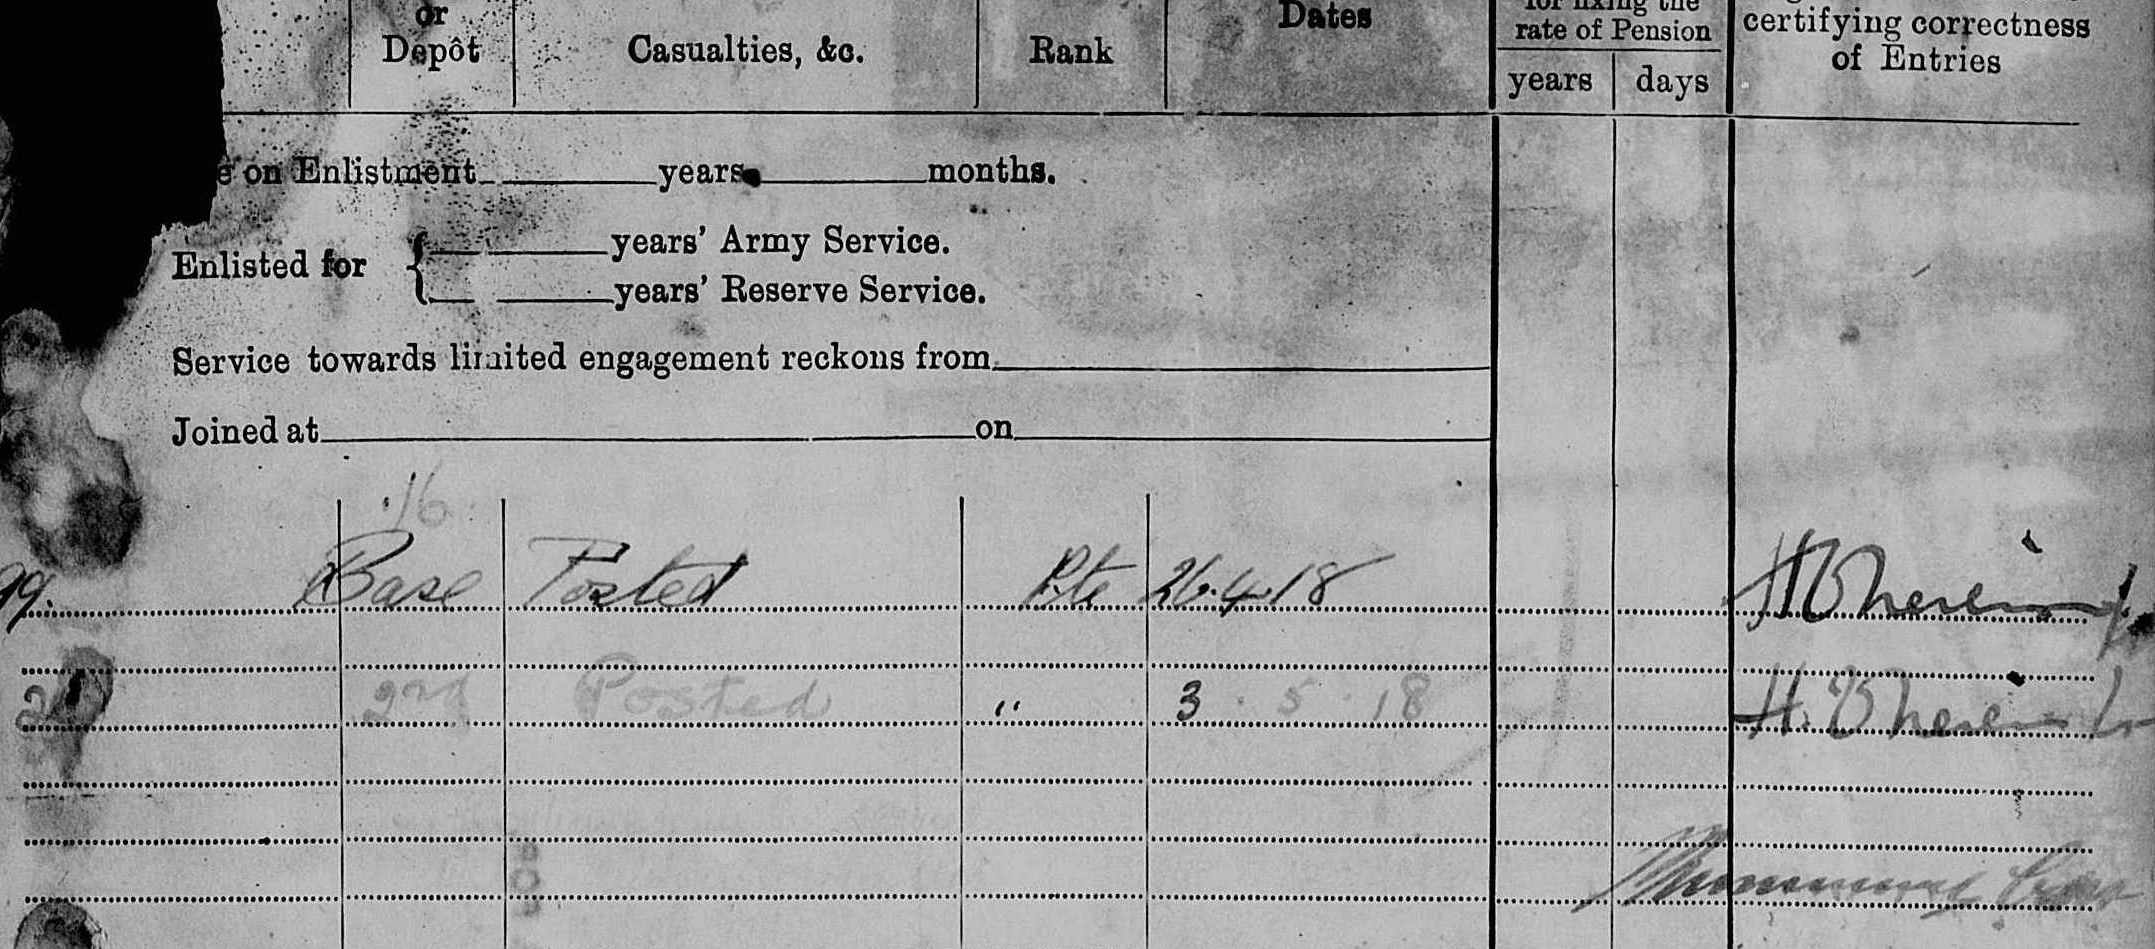 or
Depôt
Casualties, &c.
Rank
Dates
for fixing the
rate of Pension
years
days
certifying correctness
of Entries
on Enlistment years months.
Enlisted for
years' Army Service.
years' Reserve Service.
Service towards limited engagement reckons from
Joined at on
16
99. Base Posted Pte 26.4.18
2nd Posted " 3.5.18 H.